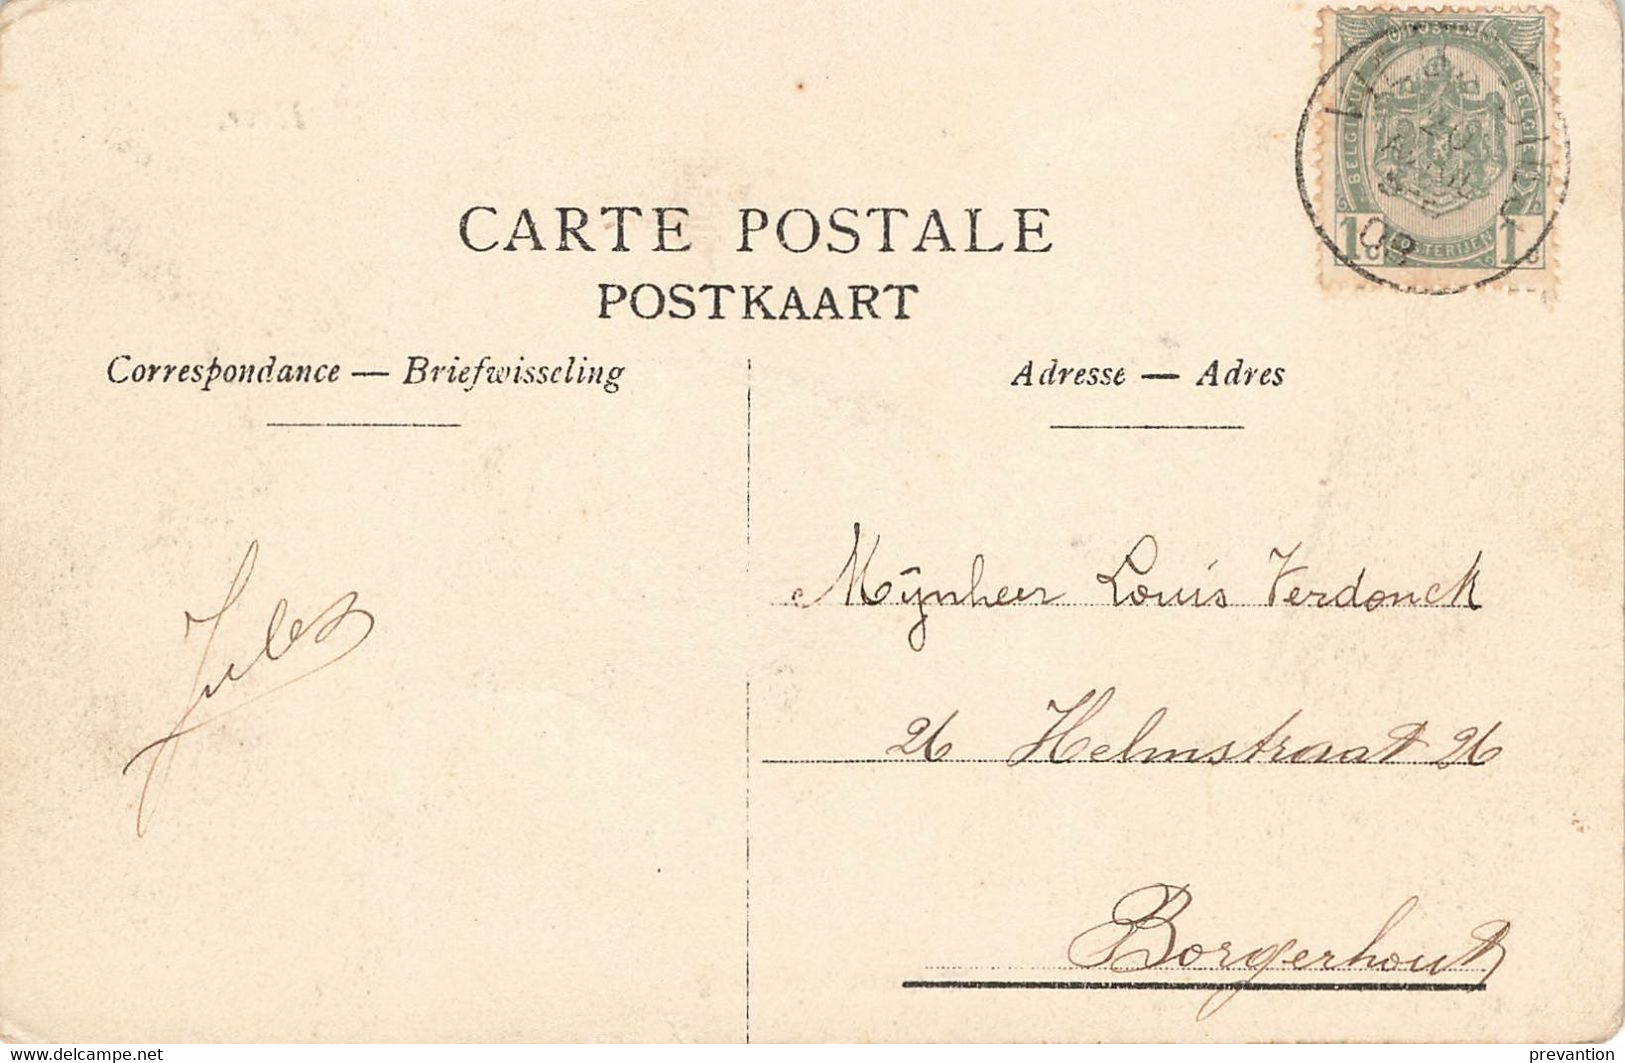 CARTE POSTALE
POSTKAART
Correspondance — Briefwisseling
Adresse — Adres
BELGIQUE
BELGIE
1c
1c
20
AVRIL
08
Mÿnheer Louis Verdonck
26 Helmstraat 26
Borgerhout
Jules
www.delcampe.net
prevantion